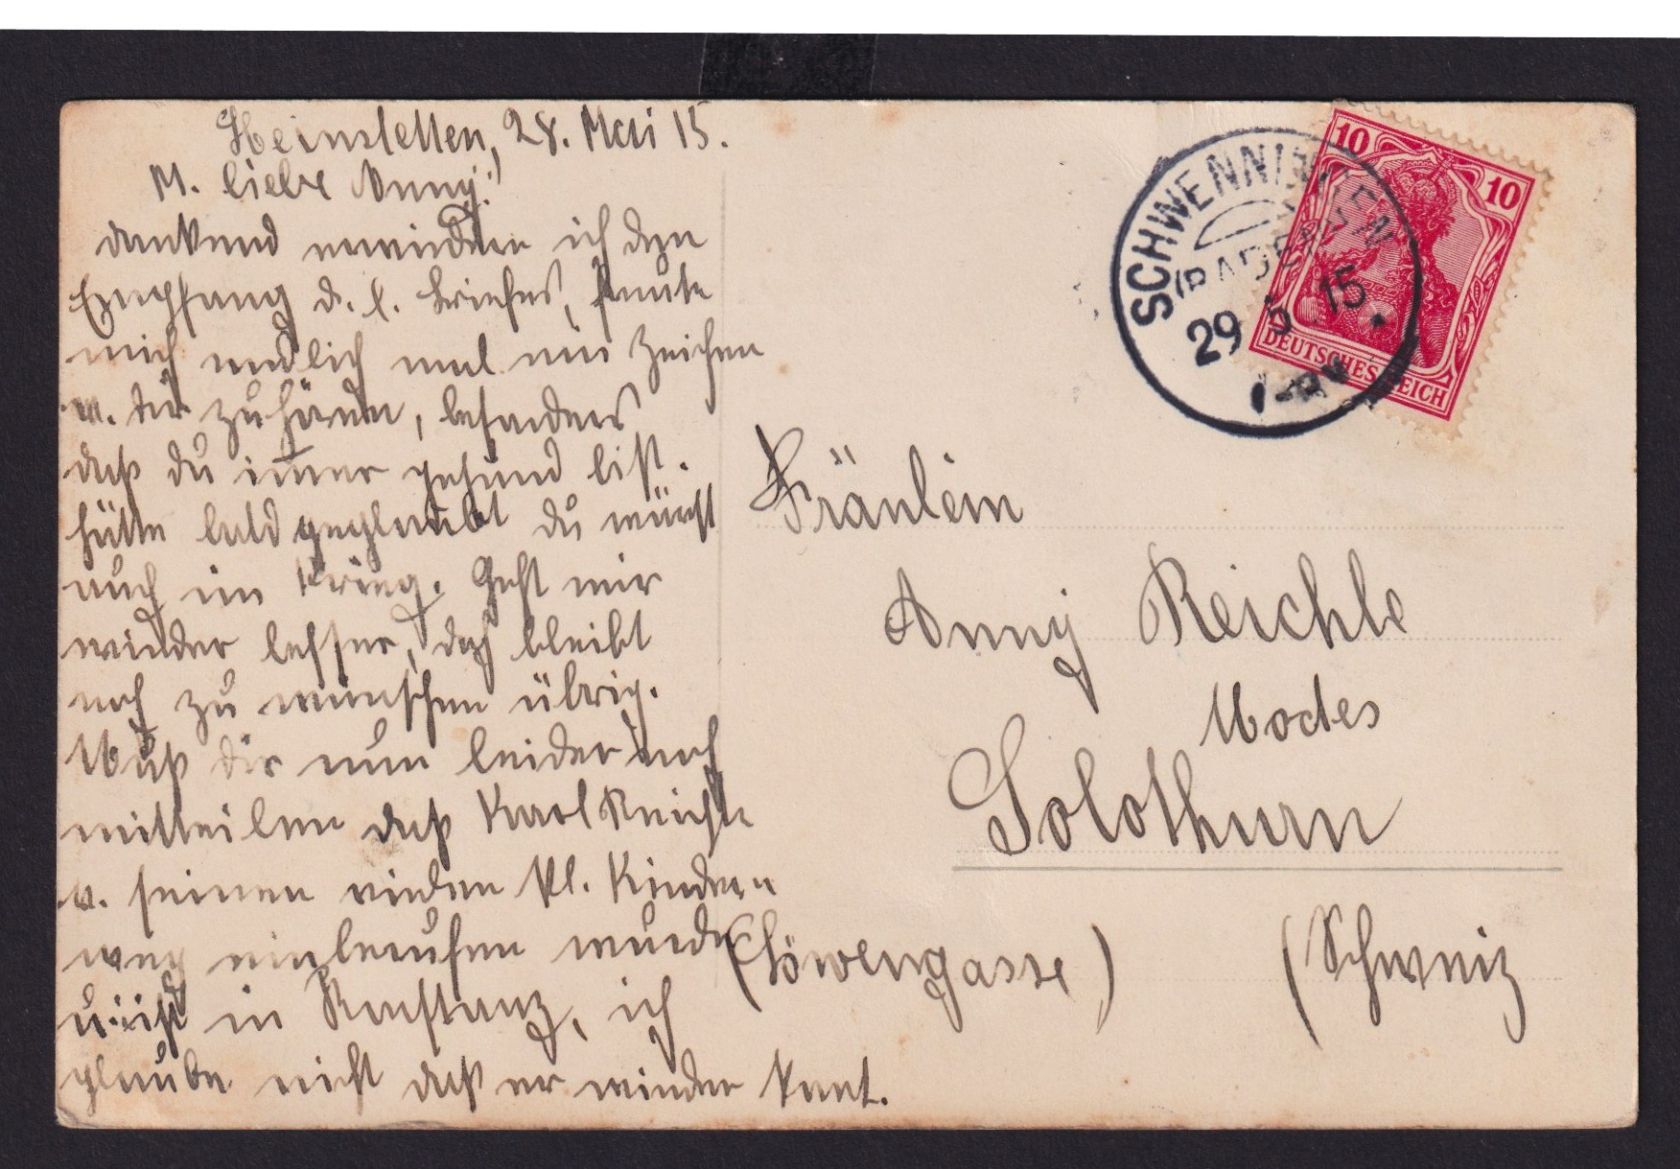 Heinstetten, 28. Mai 15.
M. liebe Anny!
dankend erwiedere ich den
Empfang d. l. Briefes, freute
mich endlich mal ein Zeichen
v. dir zu hören, besonders
daß du im̅er gesund bist.
hätte bald geglaubt du wärst
auch im Krieg. Geht mir
wieder besser, doch bleibt
noch zu wünschen übrig.
Muß dir nun leider noch
mitteilen daß Karl Reichle
v. seinen vielen kl. Kindern
weg einberufen wurde
u. ist in Konstanz, ich
glaube nicht daß er wieder kom̅t.
SCHWENNINGEN
(BADEN)
29 5 15
10 10
DEUTSCHES REICH
Fräulein
Anny Reichle
Modes
Solothurn
(Löwengasse) (Schweiz